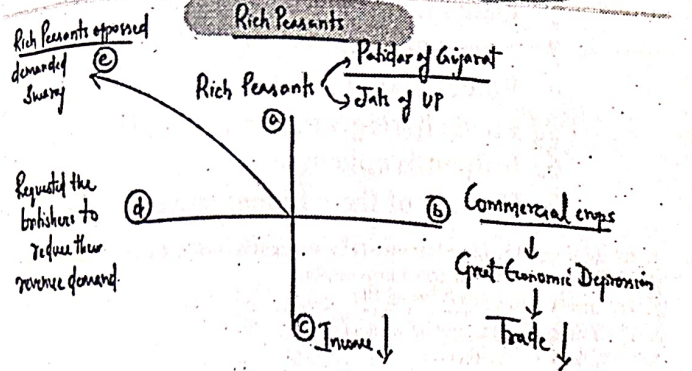 Rich Peasants
Rich Peasants opposed
demanded
Swaraj
(e)
Rich Peasants
Patidar of Gujarat
Jats of UP
(a)
Requested the
britishers to
reduce their
revenue demand.
(d)
(b)
Commercial crops
↓
Great Economic Depression
↓
Trade ↓
(c) Income ↓